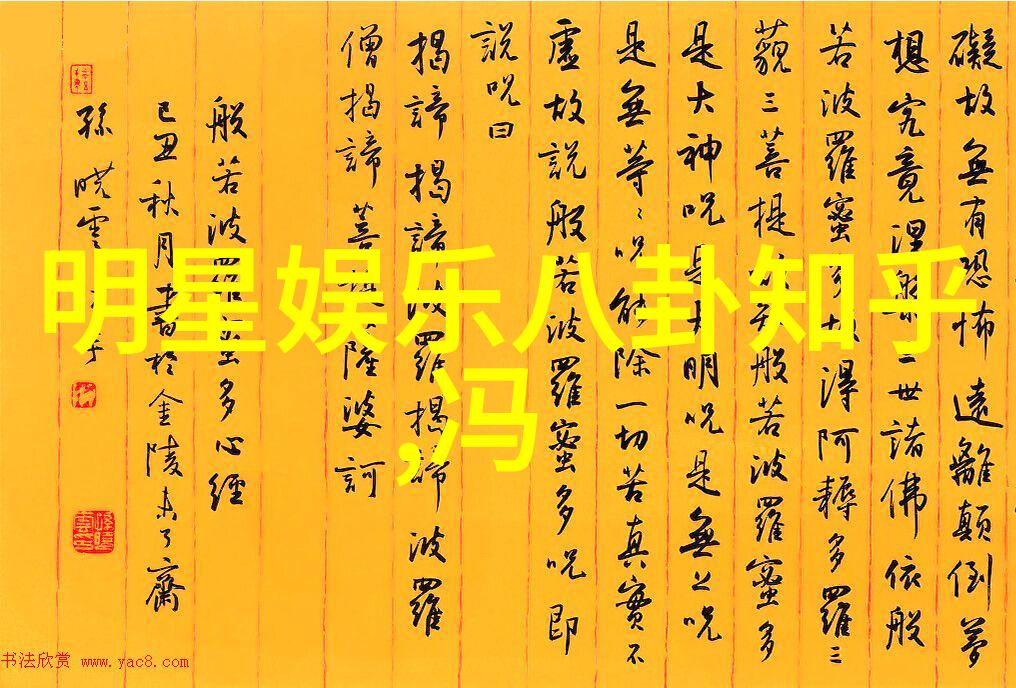 礙故無有恐怖遠離顛倒夢
想究竟涅槃三世諸佛依般
若波羅蜜多故得阿耨多羅三
藐三菩提故知般若波羅蜜多
是大神呪是大明呪是無上呪
是無等〻呪能除一切苦真實不
虛故說般若波羅蜜多呪即
說呪曰
揭諦揭諦波羅揭諦波羅
僧揭諦菩提薩婆訶
般若波羅蜜多心經
己丑秋月書於金陵未了齋
孫曉雲
明星娱乐八卦知乎
,冯
书法欣赏 www.yac8.com